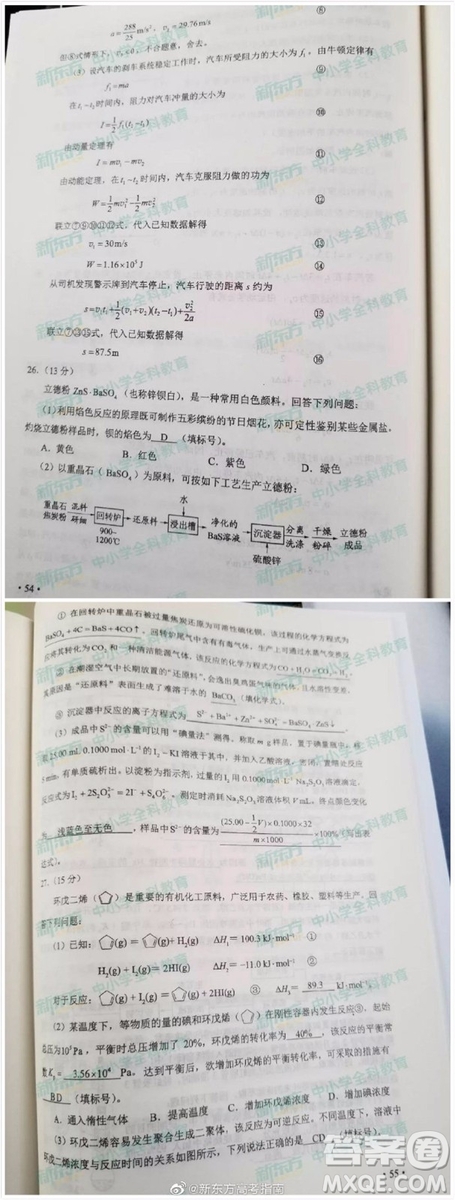 a=288/25 m/s², v₂=29.76m/s ⑥
但⑧式情形下，v₂≤0，不合题意，舍去。
(3) 设汽车的刹车系统稳定工作时，汽车所受阻力的大小为 f₁，由牛顿定律有
f₁=ma ⑨
在t₁~t₂时间内，阻力对汽车冲量的大小为
I=½f₁(t₂-t₁) ⑩
由动量定理有
I=mv₁-mv₂ ⑪
由动能定理，在t₁~t₂时间内，汽车克服阻力做的功为
W=½mv₁²-½mv₂² ⑫
联立⑦⑨⑩⑪⑫式，代入已知数据解得
v₁=30m/s ⑬
W=1.16×10⁵J ⑭
从司机发现警示牌到汽车停止，汽车行驶的距离 s 约为
s=v₁t₁+½(v₁+v₂)(t₂-t₁)+v₂²/2a ⑮
联立⑦⑬⑮式，代入已知数据解得
s=87.5m ⑯
26. (13分)
立德粉 ZnS·BaSO₄（也称锌钡白），是一种常用白色颜料。回答下列问题：
(1) 利用焰色反应的原理既可制作五彩缤纷的节日烟花，亦可定性鉴别某些金属盐。
灼烧立德粉样品时，钡的焰色为 D （填标号）。
A. 黄色 B. 红色 C. 紫色 D. 绿色
(2) 以重晶石（BaSO₄）为原料，可按如下工艺生产立德粉：
水
重晶石 混料 回转炉 还原料 浸出槽 净化的 沉淀器 分离 干燥 立德粉
焦炭粉 研细 BaS溶液 洗涤 粉碎 成品
900-
1200℃ 硫酸锌
·54·
① 在回转炉中重晶石被过量焦炭还原为可溶性硫化钡，该过程的化学方程式为
BaSO₄+4C=BaS+4CO↑。回转炉尾气中含有有毒气体，生产上可通过水蒸气变换反
应将其转化为CO₂和一种清洁能源气体，该反应的化学方程式为CO+H₂O=CO₂+H₂
② 在潮湿空气中长期放置的“还原料”，会逸出臭鸡蛋气味的气体，且水溶性变差，
其原因是“还原料”表面生成了难溶于水的 BaCO₃ （填化学式）。
③ 沉淀器中反应的离子方程式为 S²⁻+Ba²⁺+Zn²⁺+SO₄²⁻=BaSO₄·ZnS↓
(3) 成品中S²⁻的含量可以用“碘量法”测得。称取m g样品，置于碘量瓶中，移
取25.00 mL 0.1000 mol·L⁻¹的I₂-KI溶液于其中，并加入乙酸溶液，密闭，置暗处反应
5 min，有单质硫析出。以淀粉为指示剂，过量的I₂用0.1000 mol·L⁻¹Na₂S₂O₃溶液滴定，
反应式为I₂+2S₂O₃²⁻=2I⁻+S₄O₆²⁻。测定时消耗Na₂S₂O₃溶液体积V mL。终点颜色变化
为 浅蓝色至无色 ，样品中S²⁻的含量为 (25.00-½V)×0.1000×32/m×1000 ×100% （写出表
达式）。
27. (15分)
环戊二烯（）是重要的有机化工原料，广泛用于农药、橡胶、塑料等生产。回
答下列问题：
(1) 已知：(g)=(g)+H₂(g) ΔH₁=100.3 kJ·mol⁻¹ ①
H₂(g)+I₂(g)=2HI(g) ΔH₂=-11.0 kJ·mol⁻¹ ②
对于反应：(g)+I₂(g)=(g)+2HI(g) ③ ΔH₃= 89.3 kJ·mol⁻¹
(2) 某温度下，等物质的量的碘和环戊烯（）在刚性容器内发生反应③，起始
总压为10⁵Pa，平衡时总压增加了20%，环戊烯的转化率为 40% ，该反应的平衡常
数Kp= 3.56×10⁴ Pa。达到平衡后，欲增加环戊烯的平衡转化率，可采取的措施有
BD （填标号）。
A. 通入惰性气体 B. 提高温度 C. 增加环戊烯浓度 D. 增加碘浓度
(3) 环戊二烯容易发生聚合生成二聚体，该反应为可逆反应。不同温度下，溶液中
环戊二烯浓度与反应时间的关系如图所示，下列说法正确的是 CD （填标号）。
·55·
@新东方高考指南
答案圈
MXQE.COM